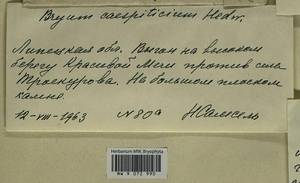 Bryum caespiticium Hedw.
Липецкая обл. Выгон на высоком
берегу Красивой Мечи против села
Троекурова. На большом плоском
камне.
12-VIII-1963 N 80а НСамсель
Herbarium MW, Bryophyta
MW 9 072 990